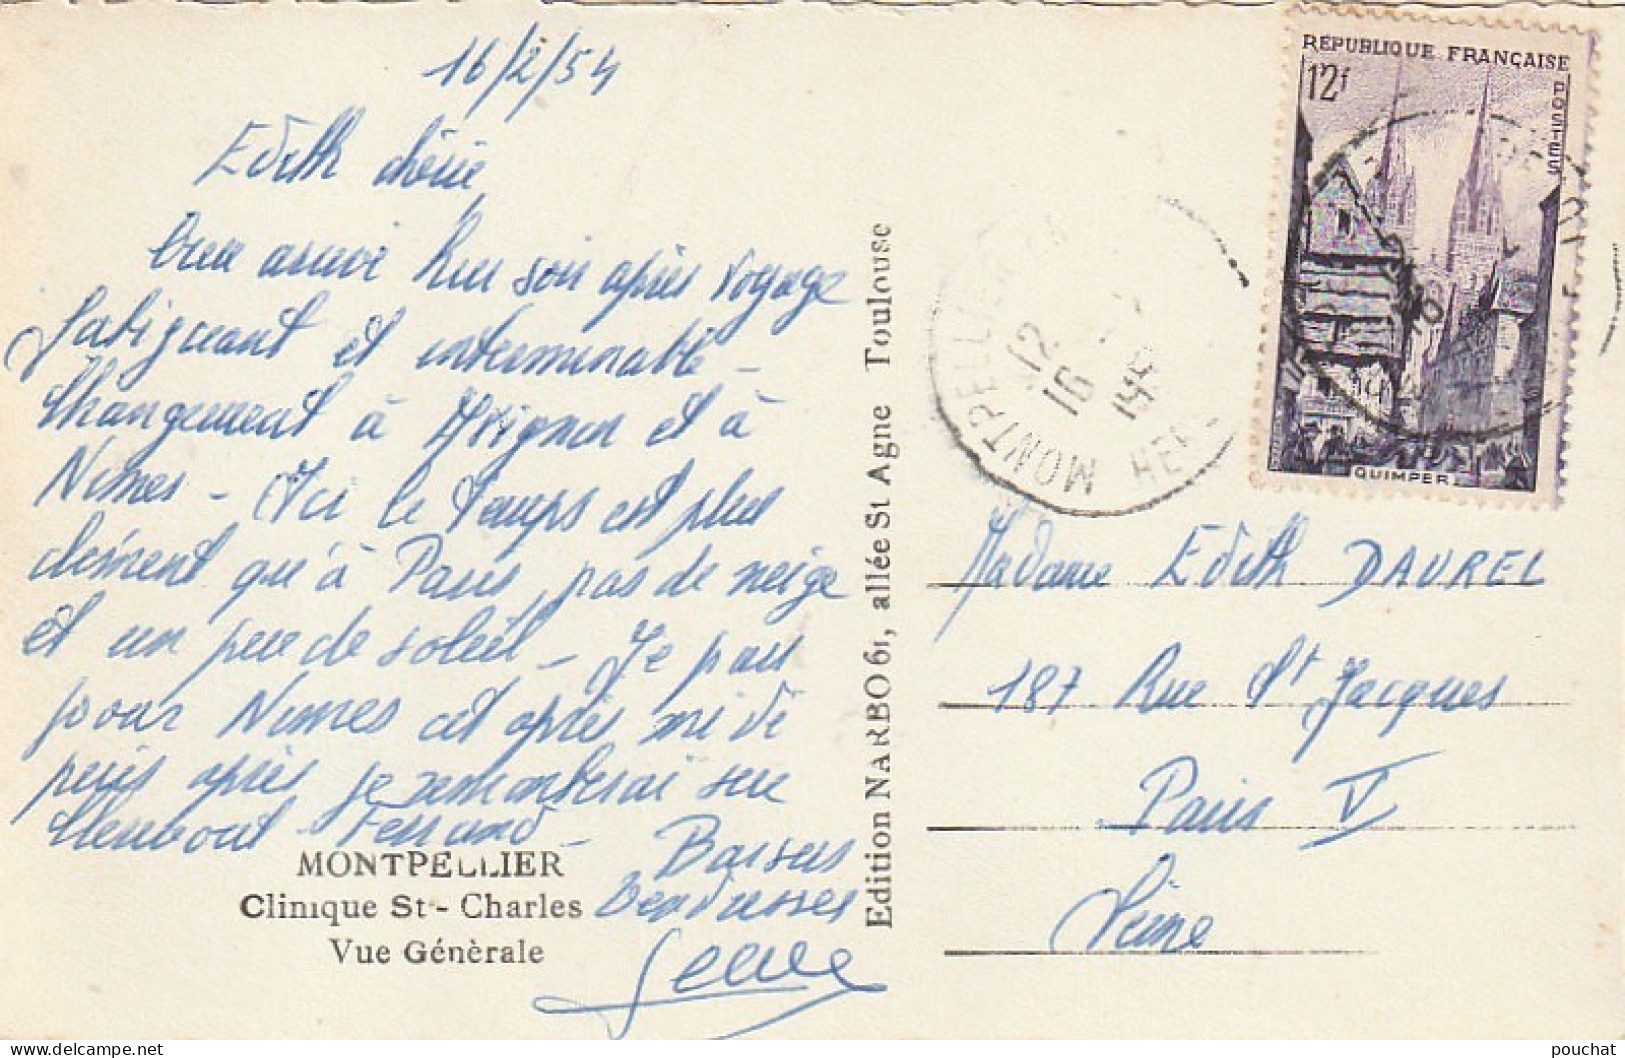 16/2/54
Edith chérie
bien arrivé hier soir après voyage
fatiguant et interminable -
Changement à Avignon et à
Nimes - Ici le temps est plus
clément qu'à Paris, pas de neige
et un peu de soleil - Je pars
pour Nimes cet après midi
puis après je remonterai sur
Clermont Ferrand -
Baisers
tendresses
MONTPELLIER
Clinique St - Charles
Vue Génèrale
Edition NARBO 61, allée St Agne Toulouse
MONTPELLIER
12
16
HER
REPUBLIQUE FRANÇAISE
12f
POSTES
QUIMPER
Madame Edith DAUREL
187 Rue St Jacques
Paris V
Seine
pouchat